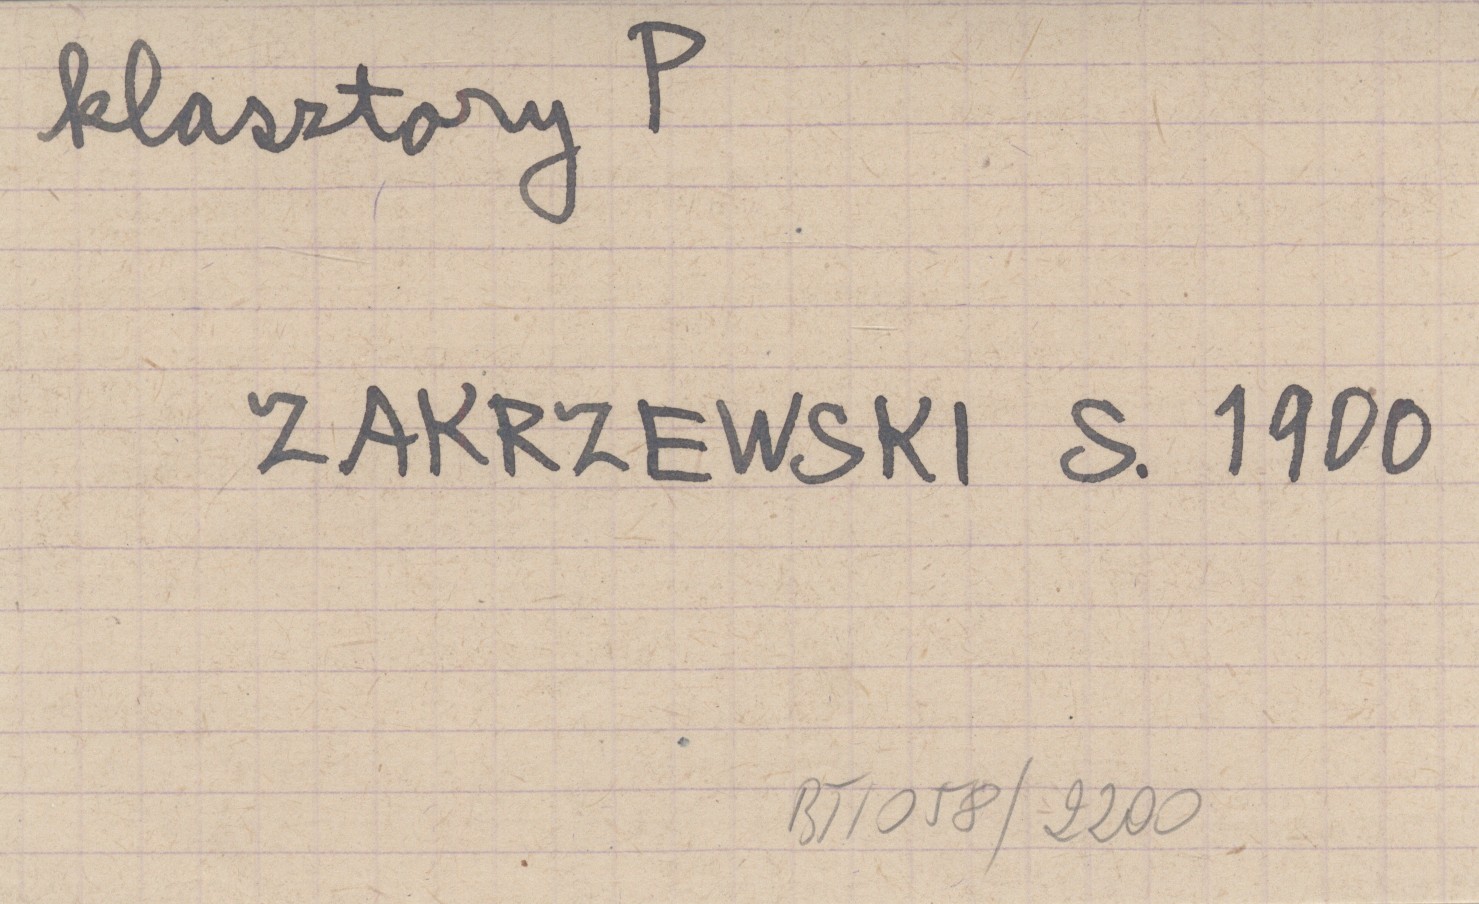 klasztory P
ZAKRZEWSKI S. 1900
BT1058/2200